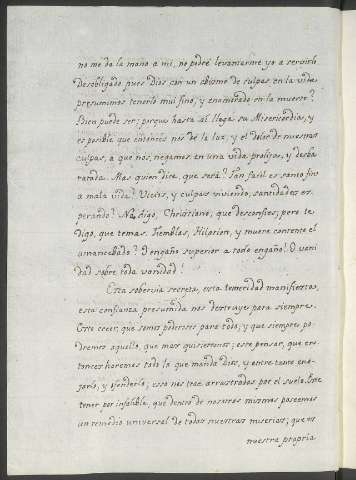 no me da la mano a mi, no podré levantarme yo a servirle
Desobligado pues Dios con un abismo de culpas en la vida
presumimos tenerlo mui fino, y enamorado en la muerte?
Bien puede ser; porque hasta aí llega su Misericordia, y
es posible que entonces nos de la luz, y el dolor de nuestras
culpas, a que nos negamos en una vida prolixa, y desba
ratada. Mas quien dice, que será? Tan facil es santo fin
a mala vida? Vicios, y culpas viviendo, santidades es
perando? No digo, Christiano, que desconfies; pero te
digo, que temas. Tiemblas, Hilarion, y muere contento el
amancebado? O engaño superior a todo engaño! O vani
dad sobre toda vanidad!
Esta sobervia secreta, esta temeridad manifiesta,
esta confianza presumida nos destruye para siempre.
Este creer, que somos poderosos para todo; y que siempre po
dremos aquello, que mas quisieremos; este pensar, que en
tonces haremos todo lo que manda Dios, y entre tanto eno
jarlo, y ofenderlo; esso nos trae arrastrados por el suelo. Este
tener por infalible, que dentro de nosotros mismos poseemos
un remedio universal de todas nuestras miserias; que es
nuestra propria